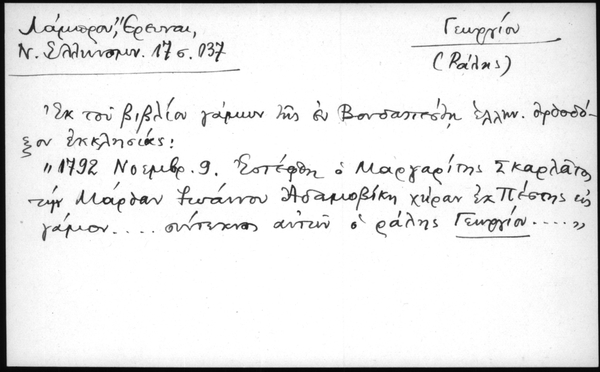 Λάμπρου, "Έρευναι,
Ν. Ελληνομν. 17 σ. 037
Γεωργίου
(Ράλης)
Ἐκ τοῦ βιβλίου γάμων τῆς ἐν Βουδαπέστῃ ἑλλην. ὀρθοδό-
ξου ἐκκλησίας:
"1792 Νοεμβρ. 9. Ἐστέφθη ὁ Μαργαρίτης Σκαρλᾶτος
τὴν Μάρθαν Ἰωάννου Ἀδαμοβίκη χήραν ἐκ Πέστης εἰς
γάμον.... σύντεκνος αὐτῶν ὁ ράλης Γεωργίου....."